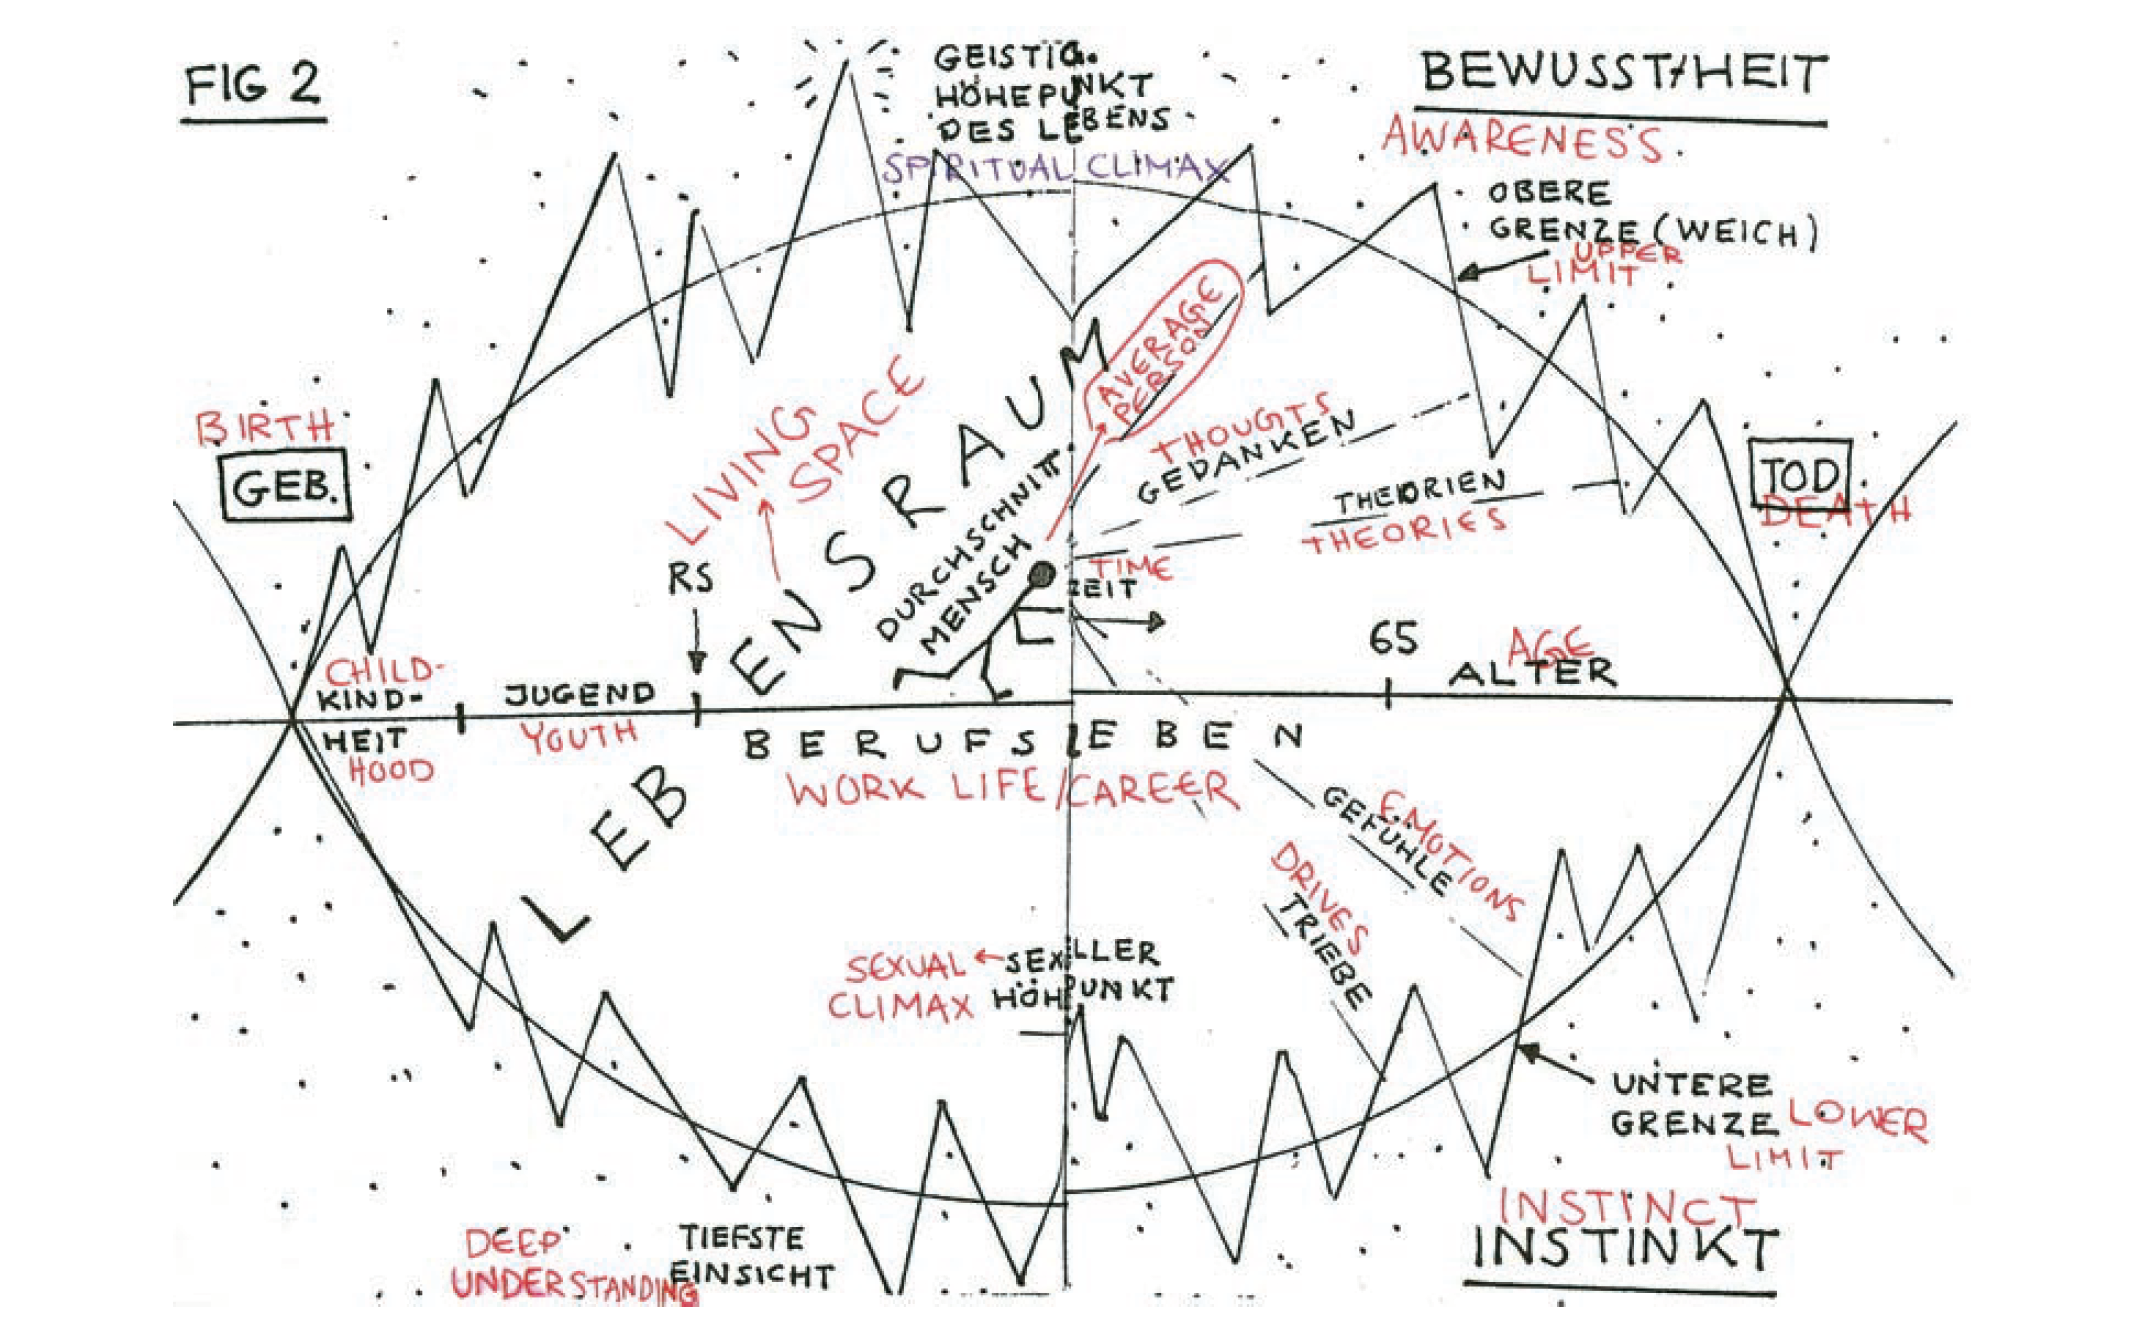 FIG 2
GEISTIG.
HÖHEPUNKT
DES LEBENS
SPIRITUAL CLIMAX
BEWUSST/HEIT
AWARENESS
OBERE
GRENZE (WEICH)
UPPER
LIMIT
BIRTH
GEB.
LIVING
SPACE
AVERAGE
PERSON
THOUGTS
GEDANKEN
THEORIEN
THEORIES
TOD
DEATH
RS
LEBENSRAUM
DURCHSCHNITT
MENSCH
TIME
ZEIT
65
AGE
ALTER
CHILD-
KIND-
HEIT
HOOD
JUGEND
YOUTH
BERUFSLEBEN
WORK LIFE/CAREER
EMOTIONS
GEFÜHLE
DRIVES
TRIEBE
SEXUAL
CLIMAX
SEXILLER
HÖHPUNKT
UNTERE
GRENZE
LOWER
LIMIT
DEEP
UNDERSTANDING
TIEFSTE
EINSICHT
INSTINCT
INSTINKT